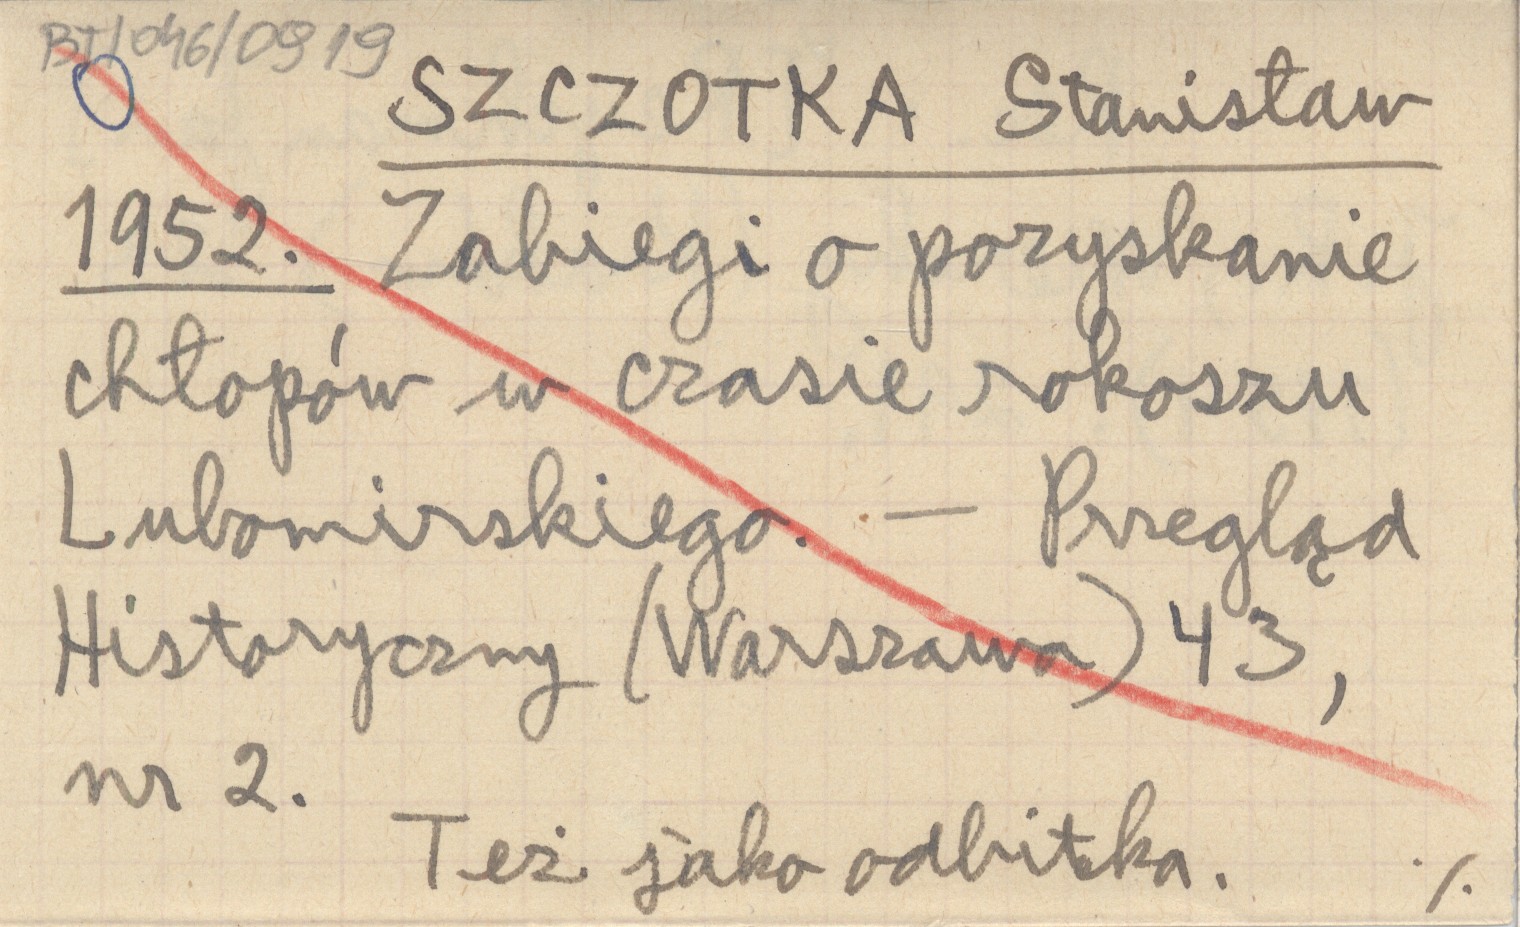 BI/046/0919
SZCZOTKA Stanisław
1952. Zabiegi o pozyskanie
chłopów w czasie rokoszu
Lubomirskiego. — Przegląd
Historyczny (Warszawa) 43,
nr 2.
Też jako odbitka. ./.